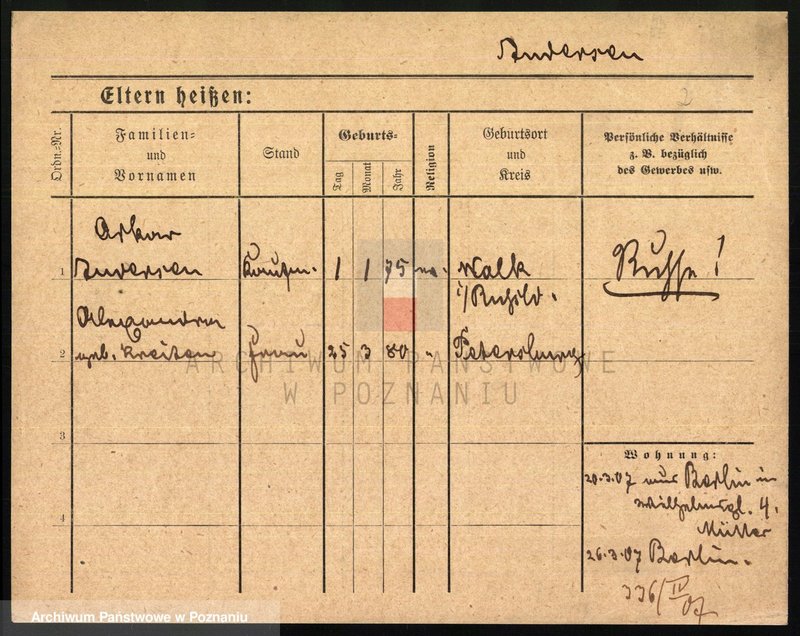 Andersen
Eltern heißen:
2
Ordn.-Nr.
Familien-
und
Vornamen
Stand
Geburts-
Tag
Monat
Jahr
Religion
Geburtsort
und
Kreis
Persönliche Verhältnisse
z. B. bezüglich
des Gewerbes usw.
Oskar
1 Andersen Kaufm. 1 1 75 ev. Walk Russe!
i/Rußld.
Alexandra
2 geb. Frau 25 3 80 " Petersburg
ARCHIWUM PAŃSTWOWE
W POZNANIU
3
Wohnung:
20.3.07 aus Berlin in
Wilhelmspl. 4.
4
26.3.07 Berlin.
336/IV
07
Archiwum Państwowe w Poznaniu